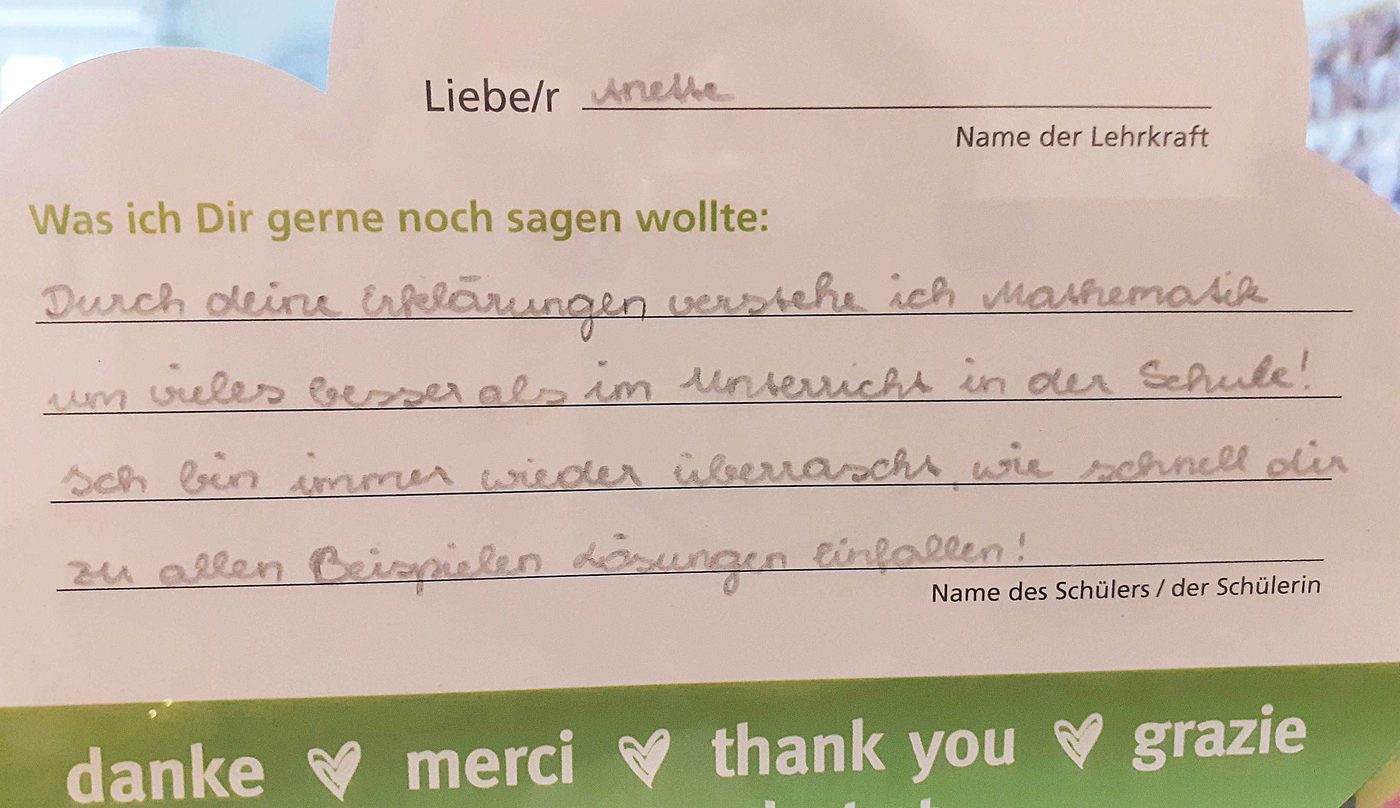 Liebe/r Anette
Name der Lehrkraft
Was ich Dir gerne noch sagen wollte:
Durch deine Erklärungen verstehe ich Mathematik
um vieles besser als im Unterricht in der Schule!
Ich bin immer wieder überrascht, wie schnell dir
zu allen Beispielen Lösungen einfallen!
Name des Schülers / der Schülerin
danke merci thank you grazie